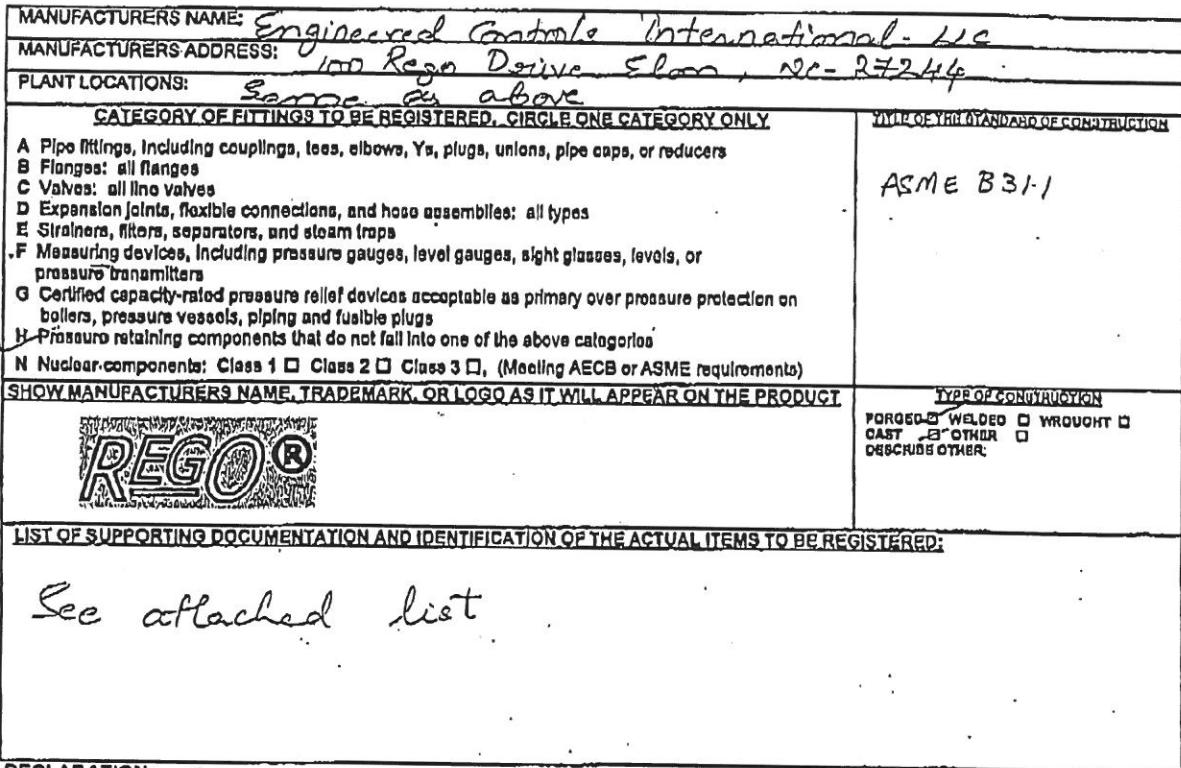 MANUFACTURERS NAME: Engineered Controls International - LLC
MANUFACTURERS ADDRESS: 100 Rego Drive Elon, NC- 27244.
PLANT LOCATIONS: Same as above
CATEGORY OF FITTINGS TO BE REGISTERED, CIRCLE ONE CATEGORY ONLY
A Pipe fittings, including couplings, tees, elbows, Ys, plugs, unions, pipe caps, or reducers
B Flanges: all flanges
C Valves: all line valves
D Expansion joints, flexible connections, and hose assemblies: all types
E Strainers, filters, separators, and steam traps
F Measuring devices, including pressure gauges, level gauges, sight glasses, levels, or
pressure transmitters
G Certified capacity-rated pressure relief devices acceptable as primary over pressure protection on
boilers, pressure vessels, piping and fusible plugs
H Pressure retaining components that do not fall into one of the above categories
N Nuclear components: Class 1 ☐ Class 2 ☐ Class 3 ☐, (Meeting AECB or ASME requirements)
TITLE OF THE STANDARD OF CONSTRUCTION
ASME B31-1
SHOW MANUFACTURERS NAME, TRADEMARK, OR LOGO AS IT WILL APPEAR ON THE PRODUCT
REGO®
TYPE OF CONSTRUCTION
FORGED ☑ WELDED ☐ WROUGHT ☐
CAST ☑ OTHER ☐
DESCRIBE OTHER:
LIST OF SUPPORTING DOCUMENTATION AND IDENTIFICATION OF THE ACTUAL ITEMS TO BE REGISTERED:
See attached list